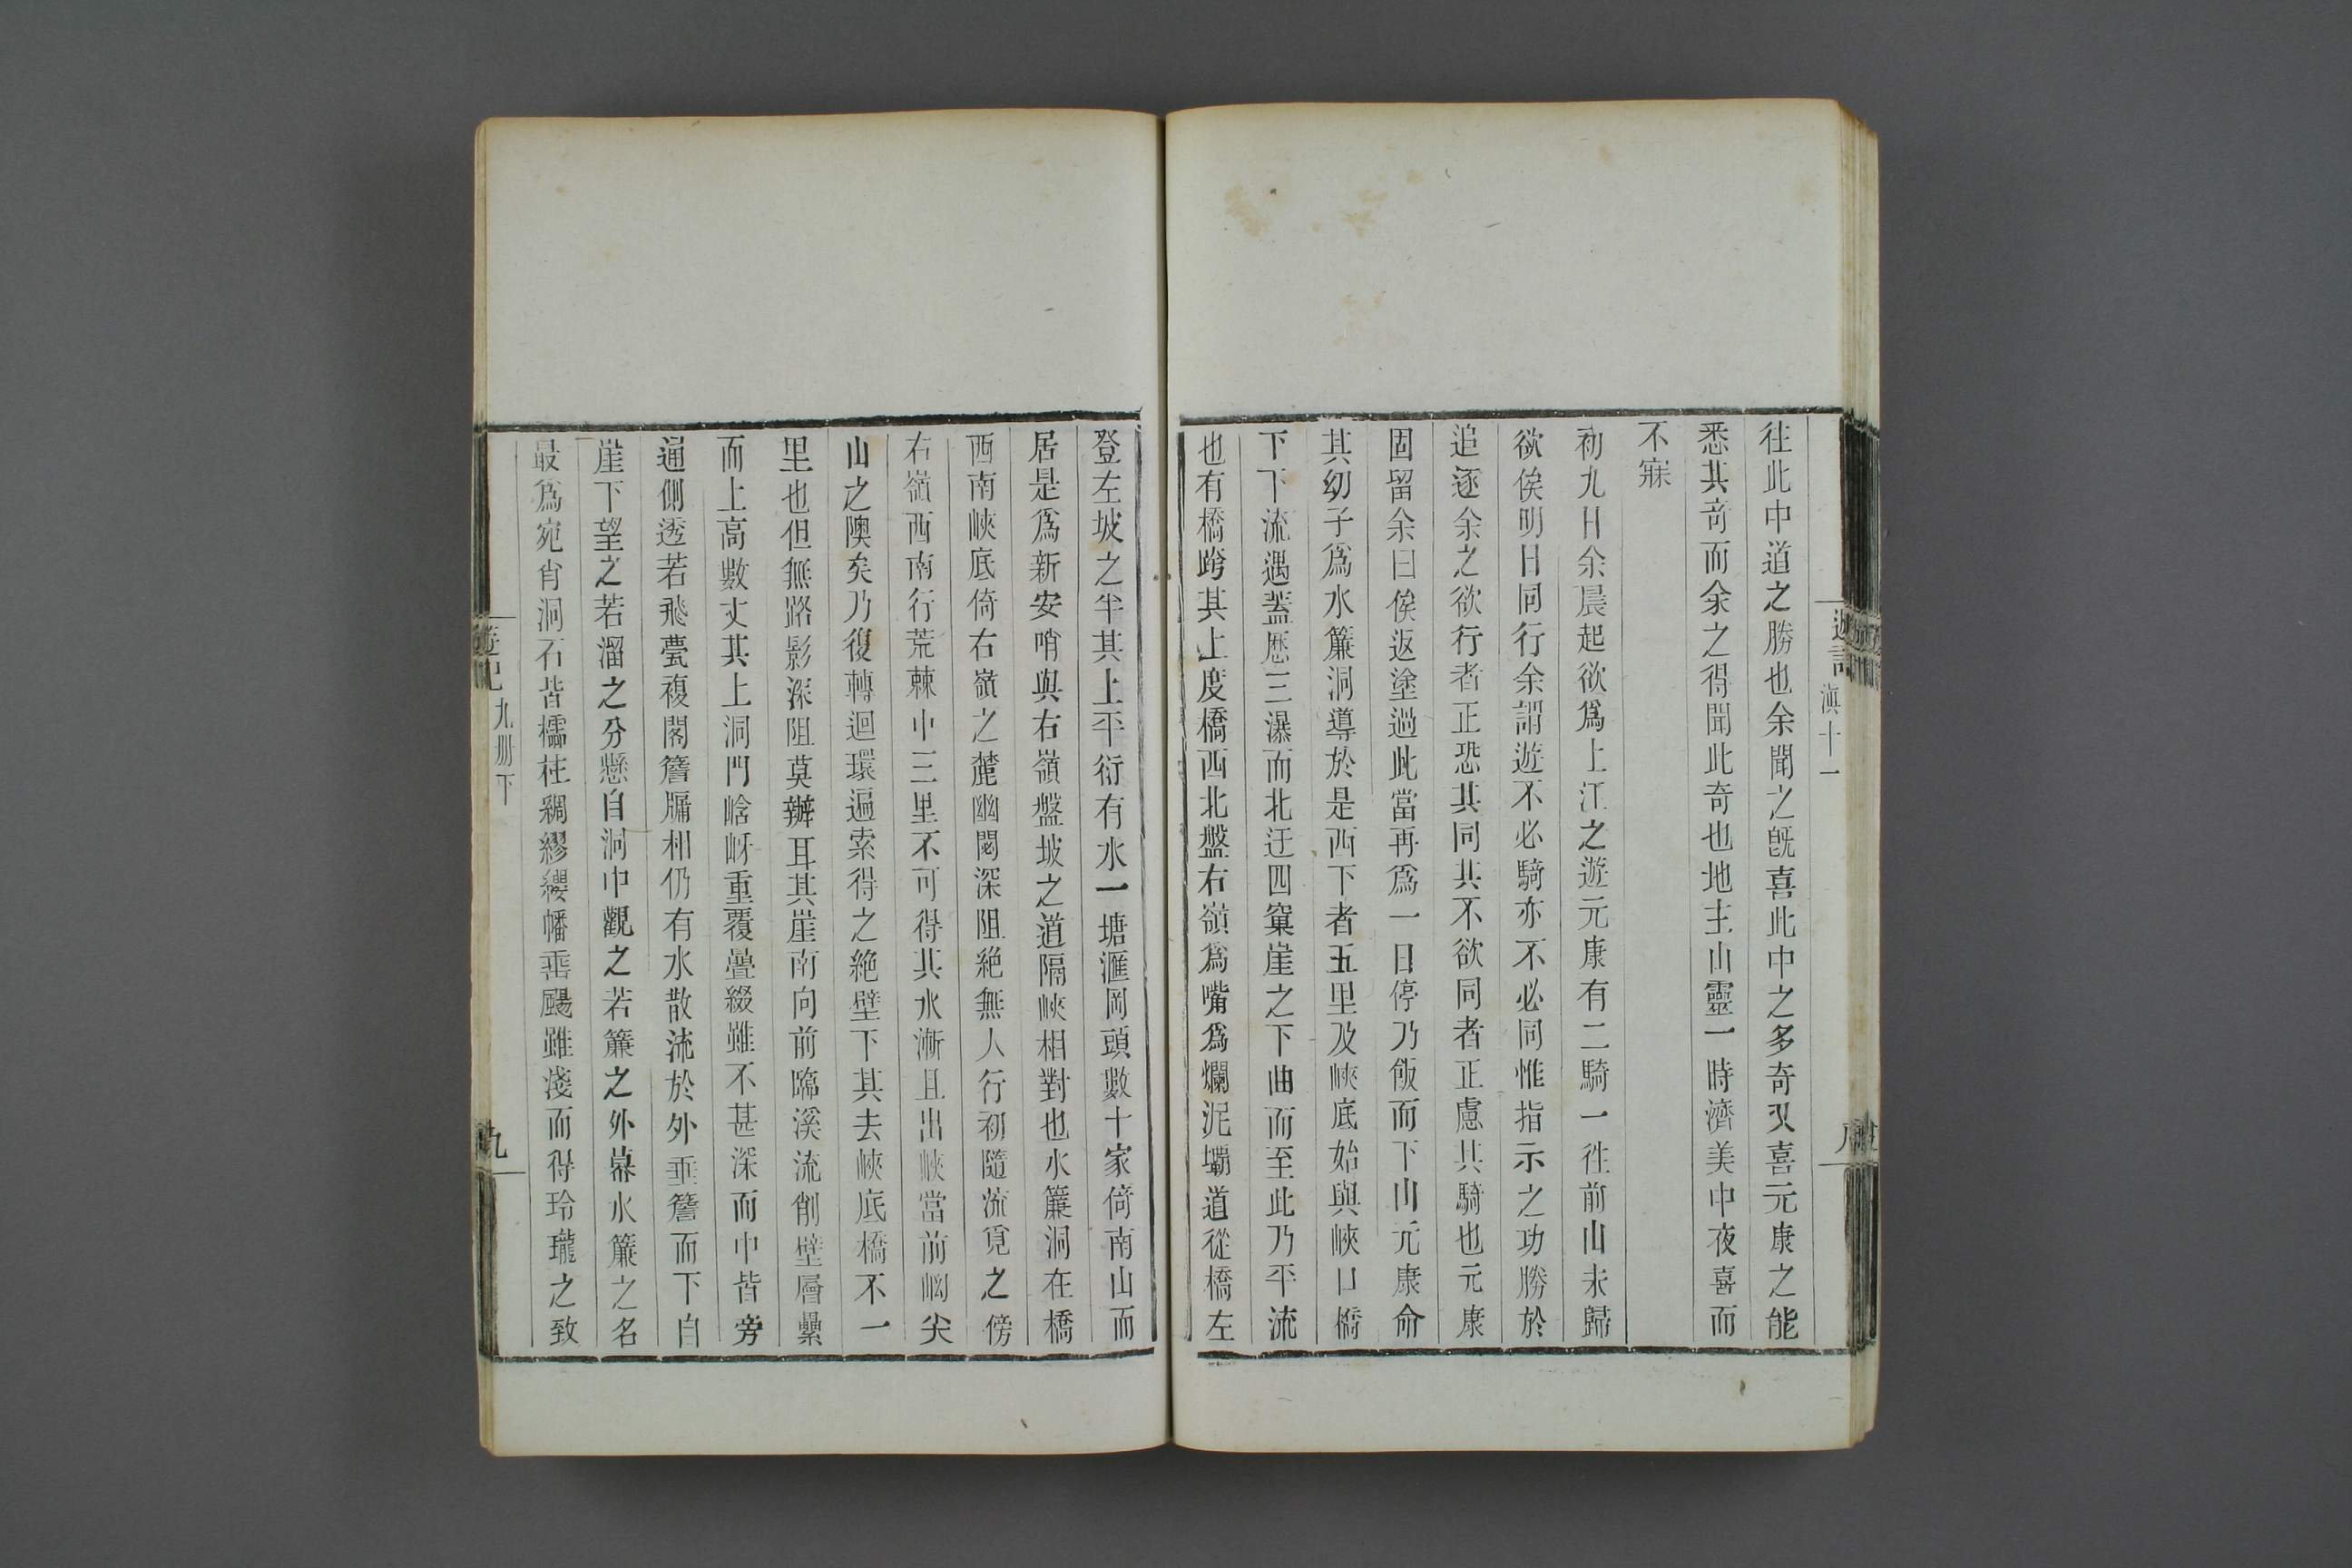 遊記 滇十一
往此中道之勝也余聞之旣喜此中之多奇又喜元康之能
悉其奇而余之得聞此奇也地主山靈一時濟美中夜喜而
不寐
初九日余晨起欲爲上江之遊元康有二騎一往前山未歸
欲俟明日同行余謂遊不必騎亦不必同惟指示之功勝於
追逐余之欲行者正恐其同其不欲同者正慮其騎也元康
固留余曰俟返塗過此當再爲一日停乃飯而下山元康命
其幼子爲水簾洞導於是西下者五里及峽底始與峽口橋
下下流遇葢歷三瀑而北迂四窠崖之下曲而至此乃平流
也有橋跨其上度橋西北盤右嶺爲嘴爲爛泥壩道從橋左
登左坡之半其上平衍有水一塘滙岡頭數十家倚南山而
居是爲新安哨與右嶺盤坡之道隔峽相對也水簾洞在橋
西南峽底倚右嶺之麓幽閟深阻絶無人行初隨流覓之傍
右嶺西南行荒棘中三里不可得其水漸且出峽當前峒尖
山之隩矣乃復轉迴環遍索得之絶壁下其去峽底橋不一
里也但無路影深阻莫辦耳其崖南向前臨溪流削壁層纍
而上高數丈其上洞門崆岈重覆疊綴雖不甚深而中皆旁
通側透若飛甍複閣簷牖相仍有水散流於外垂簷而下自
崖下望之若溜之分懸自洞中觀之若簾之外幕水簾之名
最爲宛肖洞石皆櫺柱綢繆纓幡垂颺雖淺而得玲瓏之致
遊記 九册下 九